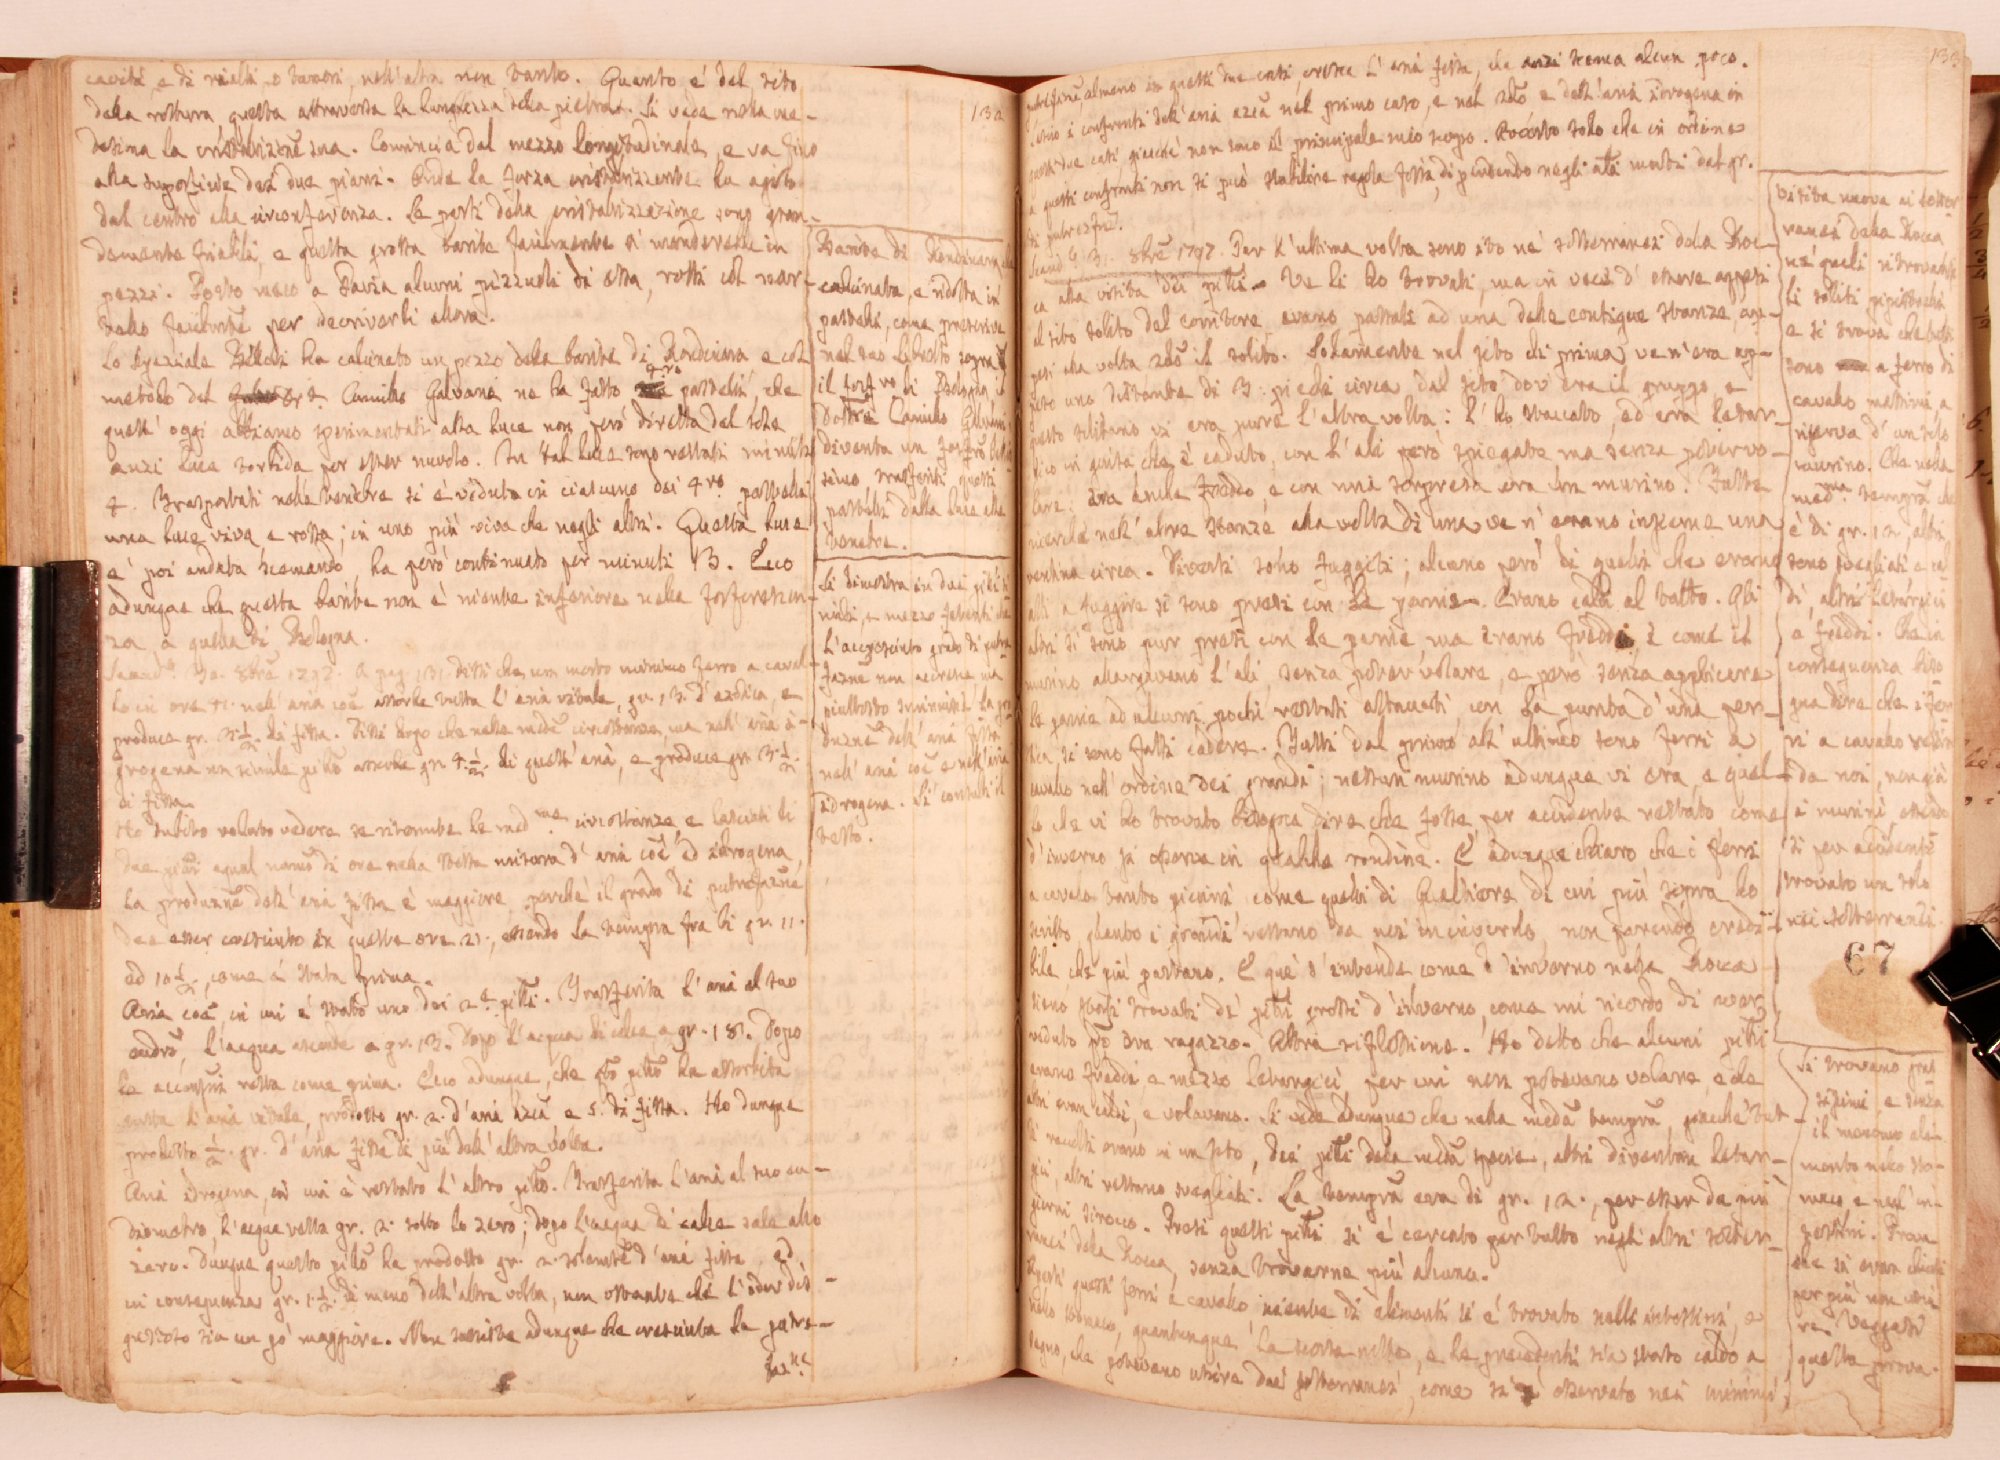 132
cavità, e di rialti o tumori, nell'altra non tanto. Quanto è del sito
della rottura, questa attraversa la lunghezza della pietra. Si vede nella me-
desima la cristalizzne sua. Comincia dal mezzo longitudinale, e va fino
alla superficie dei due piani. Onde la forza cristalizzante ha agito
dal centro alla circonferenza. Le parti della cristalizzazione sono gran-
demente friabili, e questa grossa barite facilmente si manderebbe in
pezzi. Porto meco a Pavia alcuni pezzuoli di essa, rotti col mar-
tello facilmte per descriverli allora.
Lo speziale ha calcinato un pezzo della barite di Rondinara, e col
metodo del Sr Dr Camillo Galvani ne ha fatto 4ro pastelli, che
quest'oggi abbiamo sperimentati alla luce non però diretta del sole
anzi luce torbida per esser nuvolo. In tal luce sono restati minuti
4. Trasportati nelle tenebre si è veduta in ciascuno dei 4ro pastelli
una luce viva e rossa; in uno più viva che negli altri. Questa luce
e' poi andata scemando, ha però continuato per minuti 13. Ecco
adunque che questa barite non è niente inferiore nella fosforescen-
za a quella di Bologna.
Scand.o 30. 8bre 1797. A pag. 131. dissi che un morto minimo ferro a caval-
lo in ore 21. nell'aria coe assorbe tutta l'aria vitale, gr. 13. d'azotica, e
produce gr. 3 1/2. di fissa. Dissi dopo che nelle medme circostanze, ma nell'aria i-
drogena un simile pillo assorbe gr. 4. 1/2. di quest'aria, e produce gr. 3 1/2.
di fissa.
Ho subito voluto vedere se ritenute le medme circostanze, e lasciati li
due pilli egual numo di ore nella stessa misura d'aria coe ed idrogena,
la produzne dell'aria fissa è maggiore, perchè il grado di putrefazne
dee esser cresciuto in queste ore 21, essendo la tempra fra li gr. 11.
ed 10 1/2, come è stata prima.
Aria coe, in cui è stato uno dei 2. pilli. Trasferita l'aria al suo
eudro, l'acqua ascende a gr. 13. Dopo l'acqua di calce a gr. 18. Dopo
la accensne resta come prima. Ecco adunque, che qto pillo ha assorbita
tutta l'aria vitale, prodotto gr. 2. d'aria azca e 5. di fissa. Ho dunque
prodotto 1/2. gr. d'aria fissa di più dell'altra volta.
Aria idrogena, in cui è restato l'altro pillo. Trasferita l'aria al suo eu-
diometro, l'acqua resta gr. 2. sotto lo zero; dopo l'acqua di calce sale allo
zero. Dunque questo pillo ha prodotto gr. 2. solamte d'aria fissa, ed
in conseguenza gr. 1. 1/2. di meno dell'altra volta, non ostante che l'odor dis-
gustoso sia un po' maggiore. Non sussiste adunque che cresciuta la putre-
fazne
Barite di Rondinara che
calcinata, e ridotta in
pastelli, come prescrive
nel suo libretto sopra
il fosfro di Bologna il
Dottre Camillo Galvani,
diventa un fosfro bellis-
simo trasferiti questi
pastelli dalla luce alle
tenebre.
Si dimostra in due pilli mi-
nimi, e mezzo fetenti che
l'accresciuto grado di putre-
fazne non accresce, ma
piuttosto sminuisce la pro-
duzne dell'aria fissa
nell'aria coe e nell'aria
idrogena. Si consulti il
testo.
133
putrefazne almeno in questi due casi, cresca l'aria fissa, che anzi scema alcun poco.
Ometto i confronti dell'aria azca nel primo caso, e nel 2do e dell'aria idrogena in
questi due casi giacchè non sono il principale mio scopo. Avverto solo che in ordine
a questi confronti non si può stabilire regola fissa, dipendendo negli alti morti dal gr.
di putrefzne.
Scand.o 31. 8bre 1797. Per l'ultima volta sono ito ne' sotterranei della Roc-
ca alla visita dei pilli. Ve li ho trovati, ma in vece d'essere appesi
al sito solito del corritore, erano passati ad una delle contigue stanze, ap-
pesi alla volta 2do il solito. Solamente nel sito di prima ve n'era ap-
peso uno distante di 3. piedi circa dal sito dov'era il gruppo e
questo solitario vi era pure l'altra volta: l'ho staccato, ed era letar-
gico in guisa che è caduto, con l'ali però spiegate ma senza poter vo-
lare. Era anche freddo e con mia sorpresa era un murino. Fatte
ricerche nell'altre stanze alla volta di una ve n'erano insieme una
ventina circa. Diversi sono fuggiti; alcuno però di quelli che erano
atti a fuggire si sono presi con le panie. Erano caldi al tatto. Gli
altri si sono pur presi con le panie, ma erano freddi, e come il
murino allargavano l'ali, senza poter volare, e però senza applicare
le panie ad alcuni pochi restati attaccati, con la punta d'una per-
tica, si sono fatti cadere. Tutti dal primo all'ultimo sono ferri a
cavallo nell'ordine dei grandi; nessun murino adunque vi era, e quel-
lo che vi ho trovato bisogna dire che fosse per accidente restato come
d'inverno si osserva in qualche rondine. E' adunque chiaro che i ferri
a cavallo tanto piccini come quelli di Gualtiero di cui più sopra ho
scritto, quanto i grandi restano da noi in inverno, non parendo credi-
bile che più partano. E quì s'intende come d'inverno nella Rocca
sieno stati trovati dei pilli grossi d'inverno, come mi ricordo di aver
veduto io era ragazzo. Altra riflessione. Ho detto che alcuni pilli
erano freddi, e mezzo letargici, per cui non potevano volare, e che
altri eran caldi, e volavano. Si vede adunque che nella medma tempra, giacchè tut-
ti raccolti erano in un sito, dei pilli della medma specie, altri diventan letar-
gici, altri restano svegliati. La tempra era di gr. 12., per esser da più
giorni sirocco. Presi questi pilli si è cercato per tutto negli altri sotter-
ranei della Rocca, senza trovarne più alcuno.
Aperti questi ferri a cavallo, niente di alimenti si è trovato nelli intestini, e
nello stomaco, quantunque la scorsa notte, e le precedenti sia stato caldo a
segno, che potevano uscire dai sotterranei, come si è osservato nei minimi,
Visita nuova ai sotter-
ranei della Rocca
ne' quali ritrovansi
li soliti pipistrelli
e si trova che tutti
sono a ferro di
cavallo massimi a
riserva d'un solo
murino. Che nella
medma tempra che
è di gr. 12. altri
sono svegliati e cal-
di, altri letargici
e freddi. Che in
conseguenza biso-
gna dire che i fer-
ri a cavallo restin
da noi, non già
i murini, essendo-
si per accidente
trovato un solo
nei sotterranei.
67
Si trovano gras-
sissimi, e senza
il menomo ali-
mento nello sto-
maco, e nell'in-
testini. Prova
che si eran chiusi
per più non usci-
re. Veggasi
questa prova.